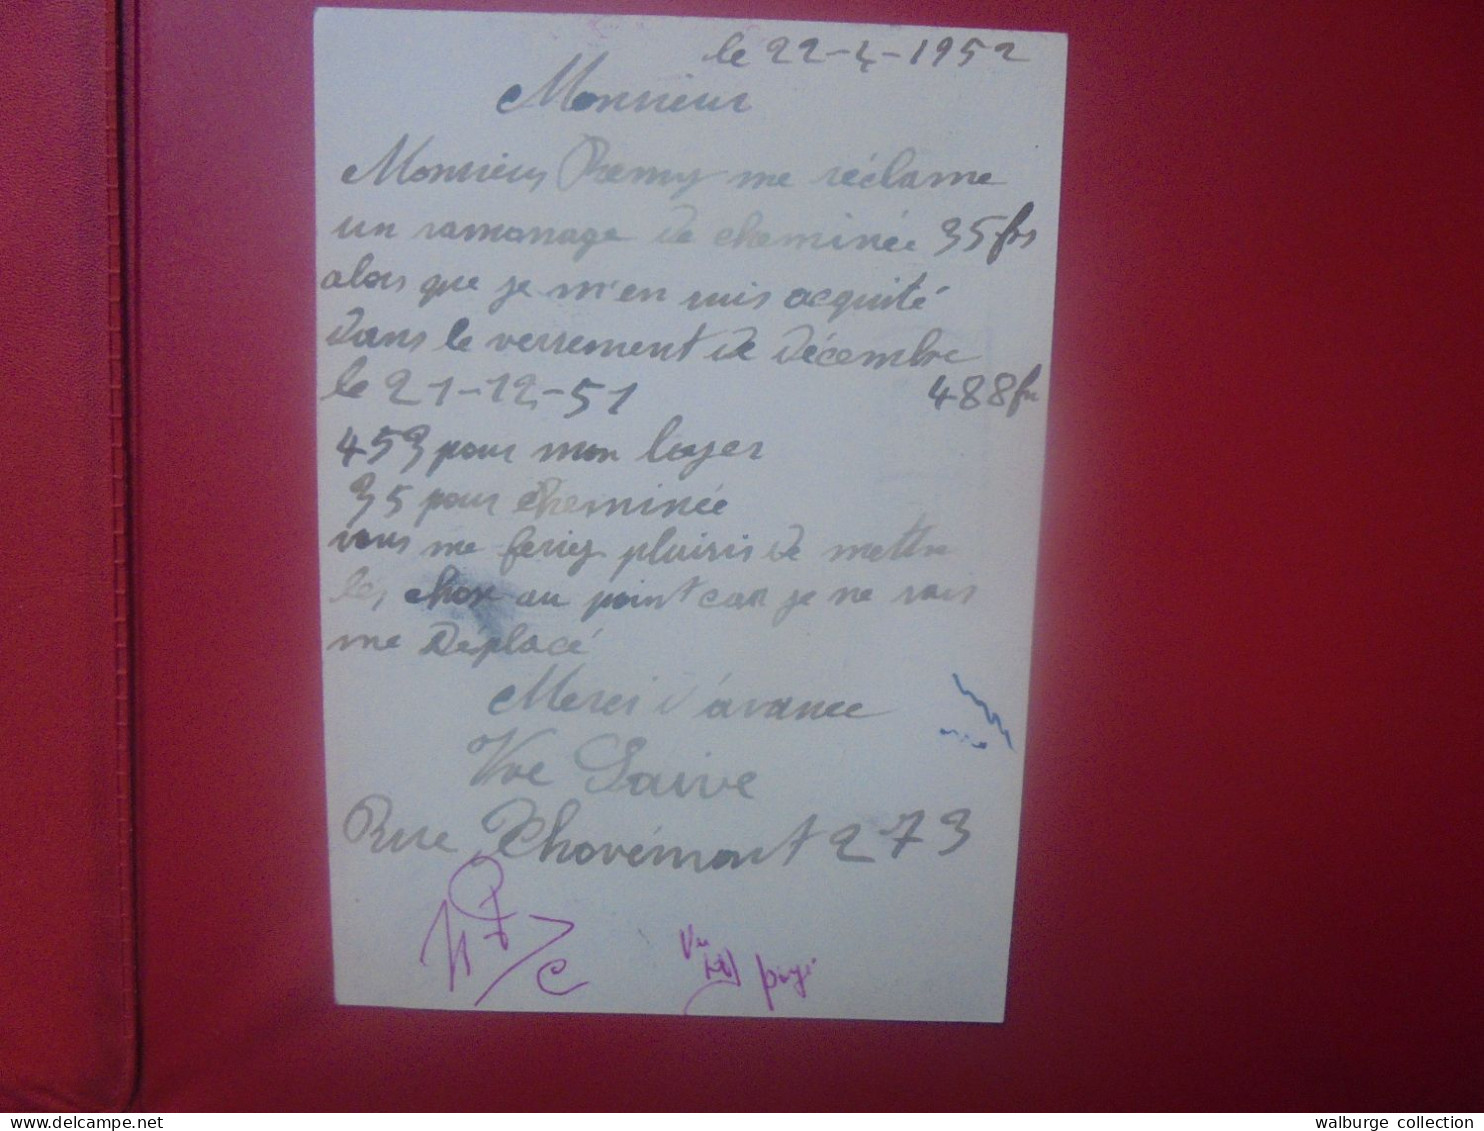 le 22-4-1952
Monsieur
Monsieur Remy me réclame
un ramonage de cheminée 35 frs
alors que je m'en suis acquité
dans le versement de décembre
le 21-12-51 488 fr
453 pour mon loyer
35 pour cheminée
vous me feriez plaisir de mettre
les chose au point car je ne sais
me déplacé
Merci d'avance
Vve Saive
Rue Thovémont 273
payé
walburge collection